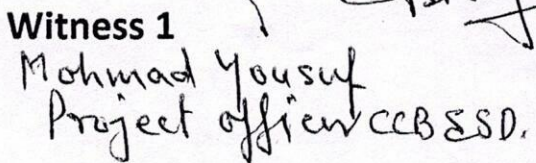 Witness 1
Mohmad Yousuf
Project officer CCB&SD.